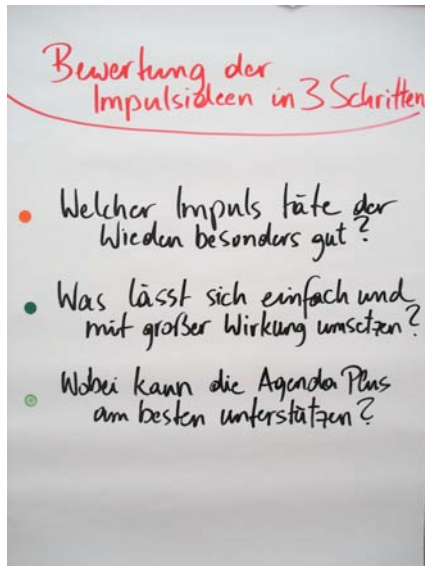 Bewertung der
Impulsideen in 3 Schritten
Welcher Impuls täte der
Wieden besonders gut?
Was lässt sich einfach und
mit großer Wirkung umsetzen?
Wobei kann die Agenda Plus
am besten unterstützen?